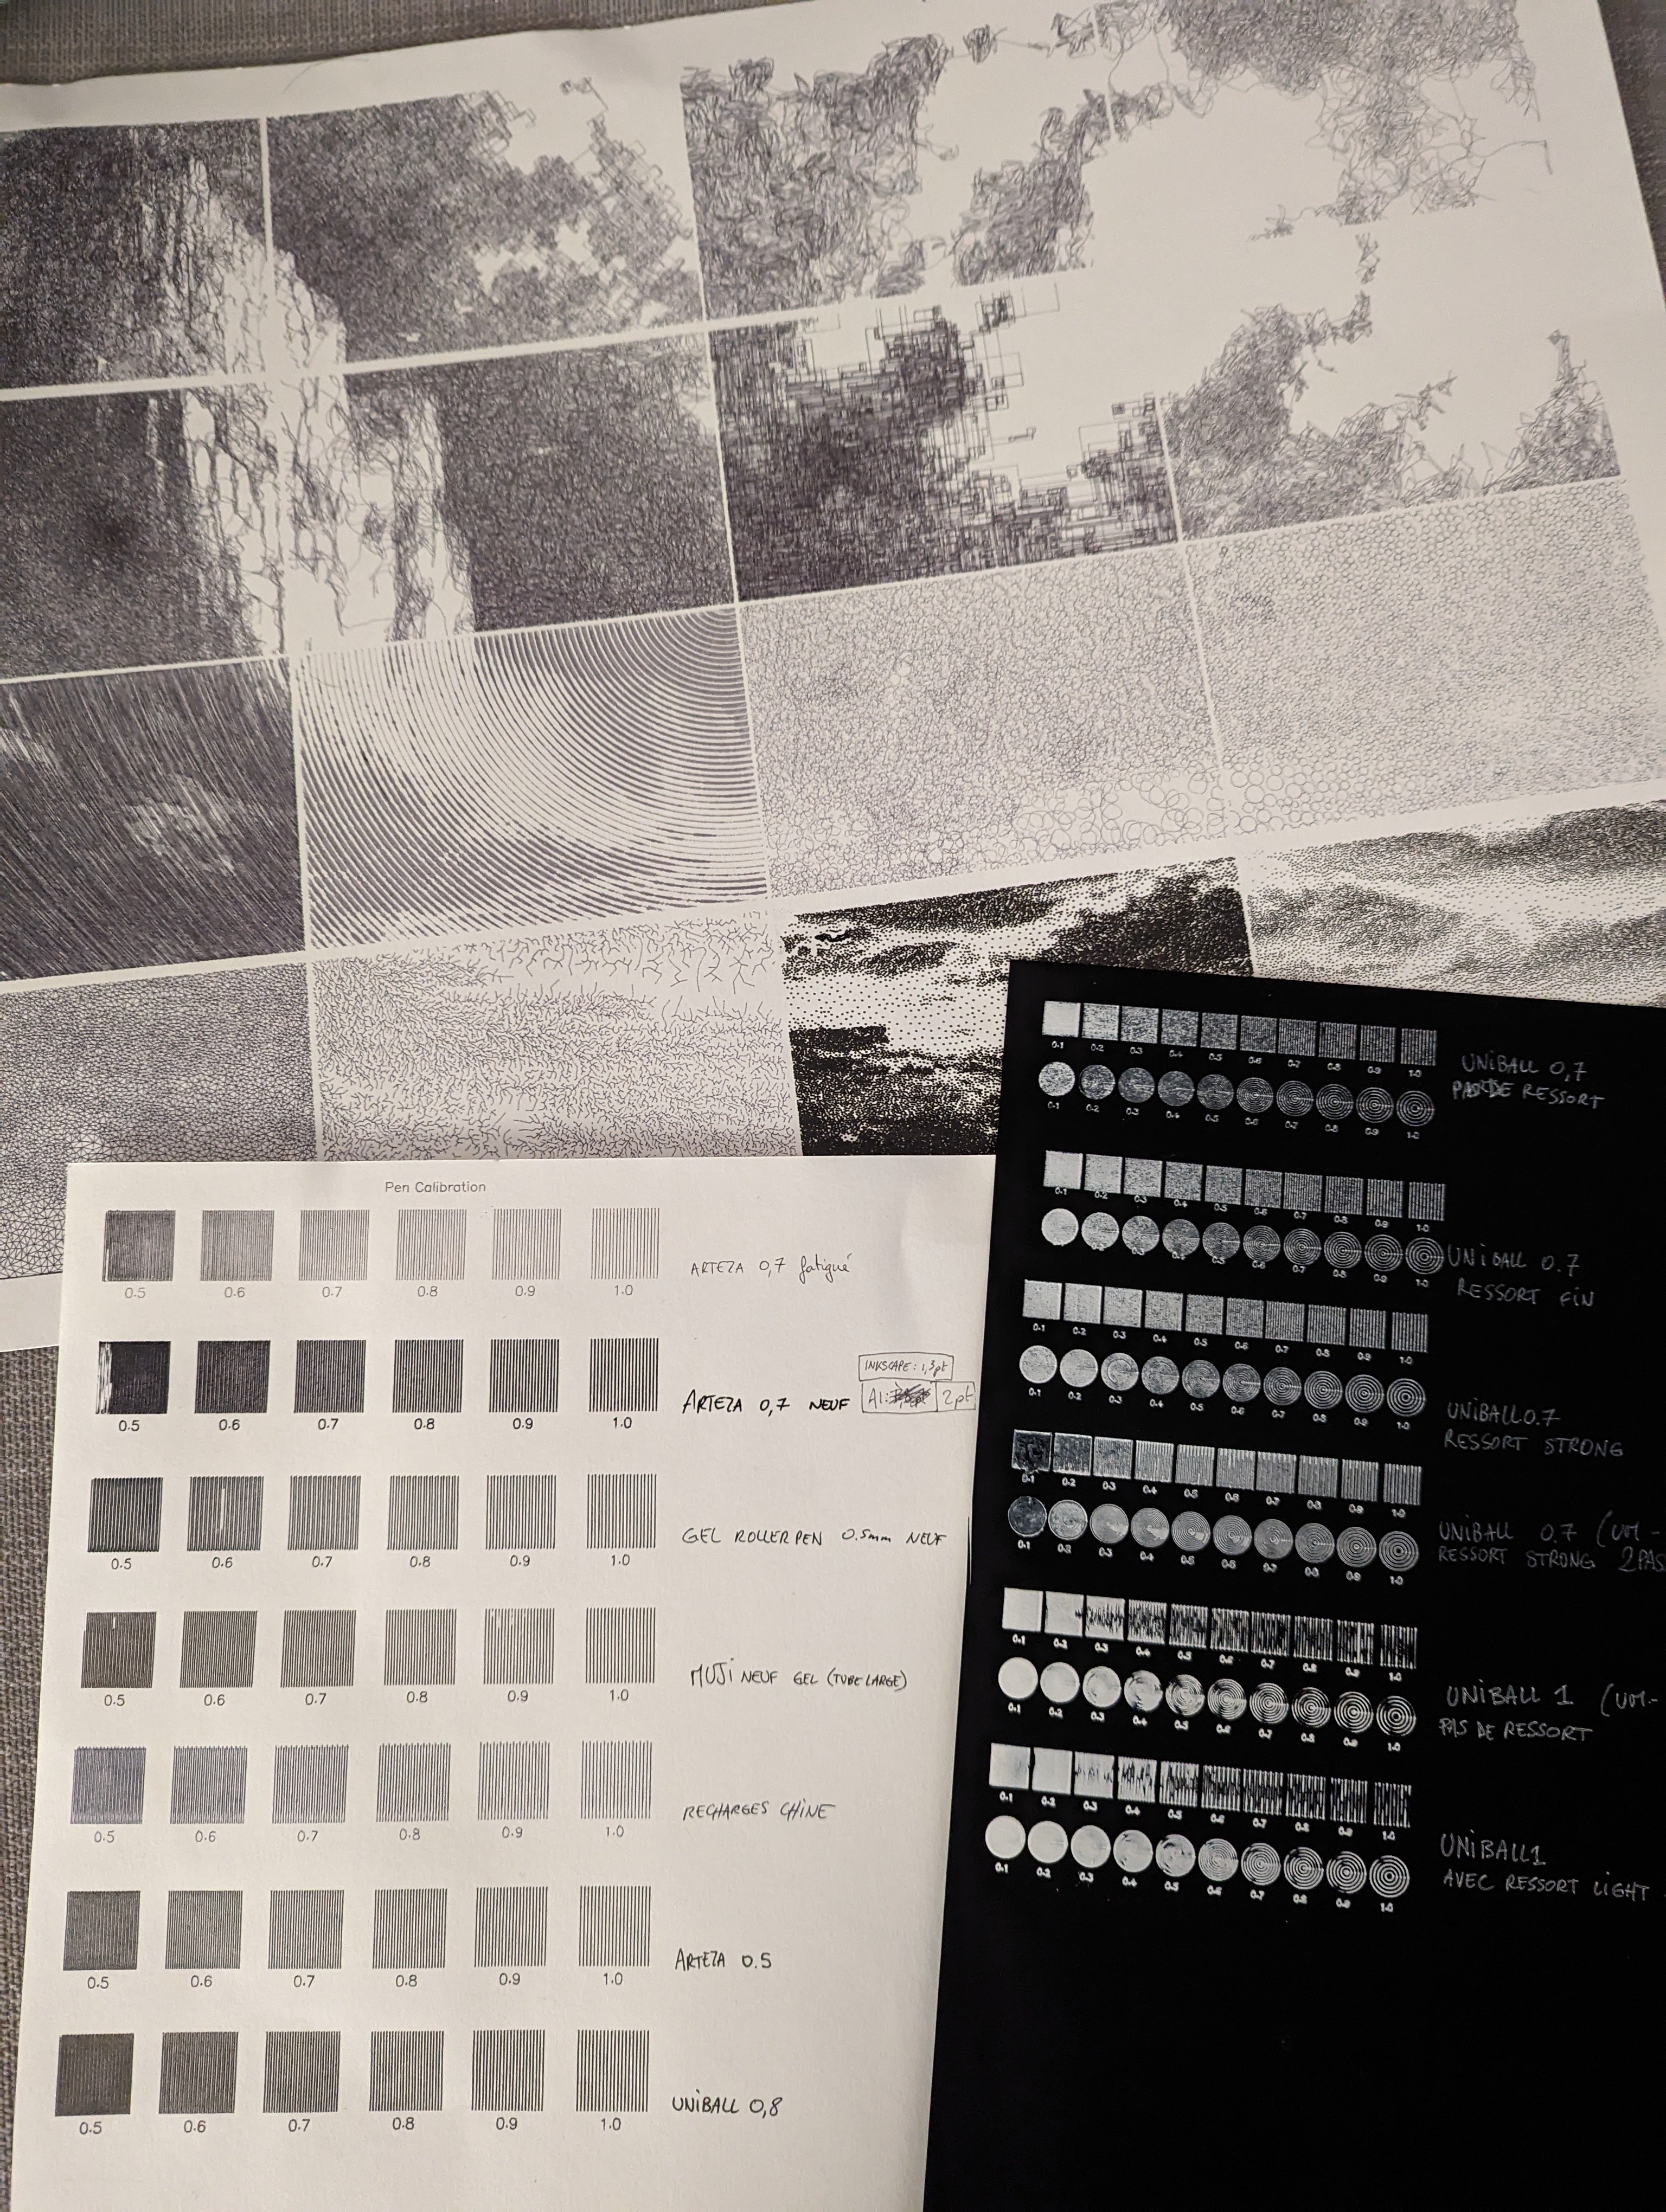 Pen Calibration
0.5 0.6 0.7 0.8 0.9 1.0
ARTEZA 0,7 fatigué
0.5 0.6 0.7 0.8 0.9 1.0
ARTEZA 0,7 NEUF
INKSCAPE: 1,3pt
AI: 2pt
0.5 0.6 0.7 0.8 0.9 1.0
GEL ROLLERPEN 0.5mm NEUF
0.5 0.6 0.7 0.8 0.9 1.0
MUJI NEUF GEL (TUBE LARGE)
0.5 0.6 0.7 0.8 0.9 1.0
RECHARGES CHINE
0.5 0.6 0.7 0.8 0.9 1.0
ARTEZA 0.5
0.5 0.6 0.7 0.8 0.9 1.0
UNIBALL 0,8
0.1 0.2 0.3 0.4 0.5 0.6 0.7 0.8 0.9 1.0
0.1 0.2 0.3 0.4 0.5 0.6 0.7 0.8 0.9 1.0
UNIBALL 0,7
PAS DE RESSORT
0.1 0.2 0.3 0.4 0.5 0.6 0.7 0.8 0.9 1.0
0.1 0.2 0.3 0.4 0.5 0.6 0.7 0.8 0.9 1.0
UNIBALL 0.7
RESSORT FIN
0.1 0.2 0.3 0.4 0.5 0.6 0.7 0.8 0.9 1.0
0.1 0.2 0.3 0.4 0.5 0.6 0.7 0.8 0.9 1.0
UNIBALL 0.7
RESSORT STRONG
0.1 0.2 0.3 0.4 0.5 0.6 0.7 0.8 0.9 1.0
0.1 0.2 0.3 0.4 0.5 0.6 0.7 0.8 0.9 1.0
UNIBALL 0.7
RESSORT STRONG 2PAS
0.1 0.2 0.3 0.4 0.5 0.6 0.7 0.8 0.9 1.0
0.1 0.2 0.3 0.4 0.5 0.6 0.7 0.8 0.9 1.0
UNIBALL 1
PAS DE RESSORT
0.1 0.2 0.3 0.4 0.5 0.6 0.7 0.8 0.9 1.0
0.1 0.2 0.3 0.4 0.5 0.6 0.7 0.8 0.9 1.0
UNIBALL 1
AVEC RESSORT LIGHT